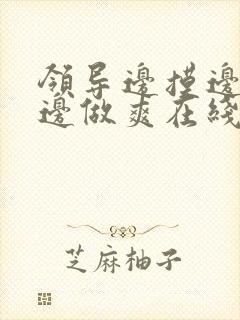 领导邊摸邊
邊做爽在綫
芝麻柚子